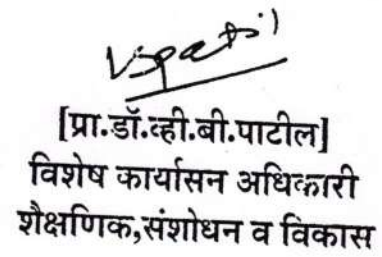 vspatil
[प्रा.डॉ.व्ही.बी.पाटील]
विशेष कार्यासन अधिकारी
शैक्षणिक,संशोधन व विकास